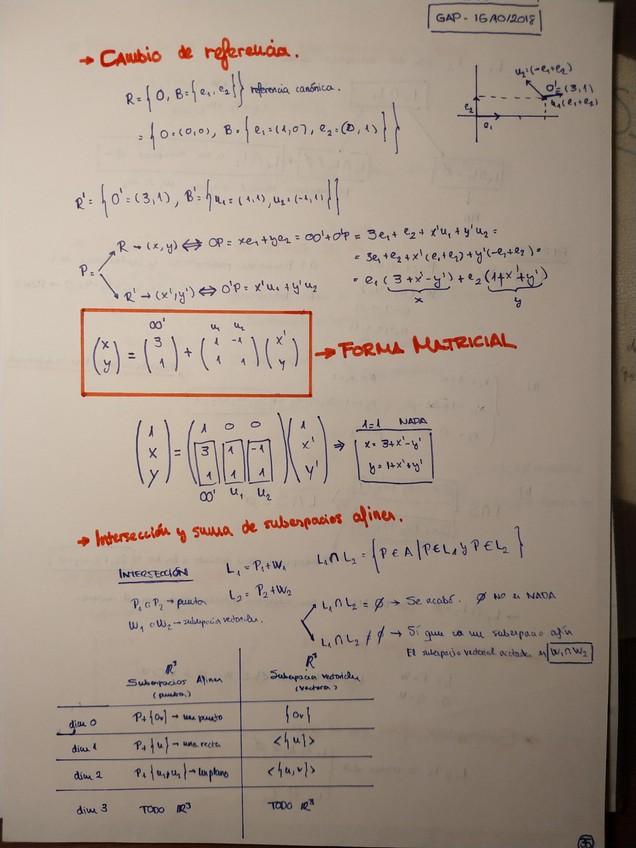 GAP - 16/10/2018
→ CAMBIO de referencia.
R = { O, B = { e₁, e₂ } } referencia canónica.
= { O = (0,0), B = { e₁ = (1,0), e₂ = (0,1) } }
u₂ = (-e₁+e₂)
O' = (3,1)
u₁ (e₁+e₂)
e₂
e₁
R' = { O' = (3,1), B' = { u₁ = (1,1), u₂ = (-1,1) } }
P =
R → (x,y) ⇔ OP = xe₁ + ye₂ = OO' + O'P = 3e₁ + e₂ + x'u₁ + y'u₂ =
= 3e₁ + e₂ + x'(e₁+e₂) + y'(-e₁+e₂) =
R' → (x',y') ⇔ O'P = x'u₁ + y'u₂
= e₁ (3+x'-y') + e₂ (1+x'+y')
x y
OO' u₁ u₂
(x y) = (3 1) + (1 -1 1 1) (x' y) → FORMA MATRICIAL
(1 x y) = (1 0 0 3 1 -1 1 1 1) (1 x' y') ⇒
OO' u₁ u₂
1=1 NADA
x = 3+x'-y'
y = 1+x'+y'
→ Intersección y suma de subespacios afines.
INTERSECCIÓN
L₁ = P₁ + W₁
L₂ = P₂ + W₂
L₁ ∩ L₂ = { P ∈ A | P ∈ L₁ y P ∈ L₂ }
P₁ o P₂ → punto
W₁ o W₂ → subespacio vectorial.
L₁ ∩ L₂ = ∅ → Se acabó. ∅ No es NADA
L₁ ∩ L₂ ≠ ∅ → Sí que es un subespacio afín
El subespacio vectorial es W₁ ∩ W₂
ℝ³ Subespacios Afines (puntos)
ℝ³ Subespacios vectoriales (vectores)
dim 0 P + {Ov} → un punto {Ov}
dim 1 P + {u} → una recta <{u}>
dim 2 P + {u₁,u₂} → Un plano <{u,v}>
dim 3 TODO ℝ³ TODO ℝ³